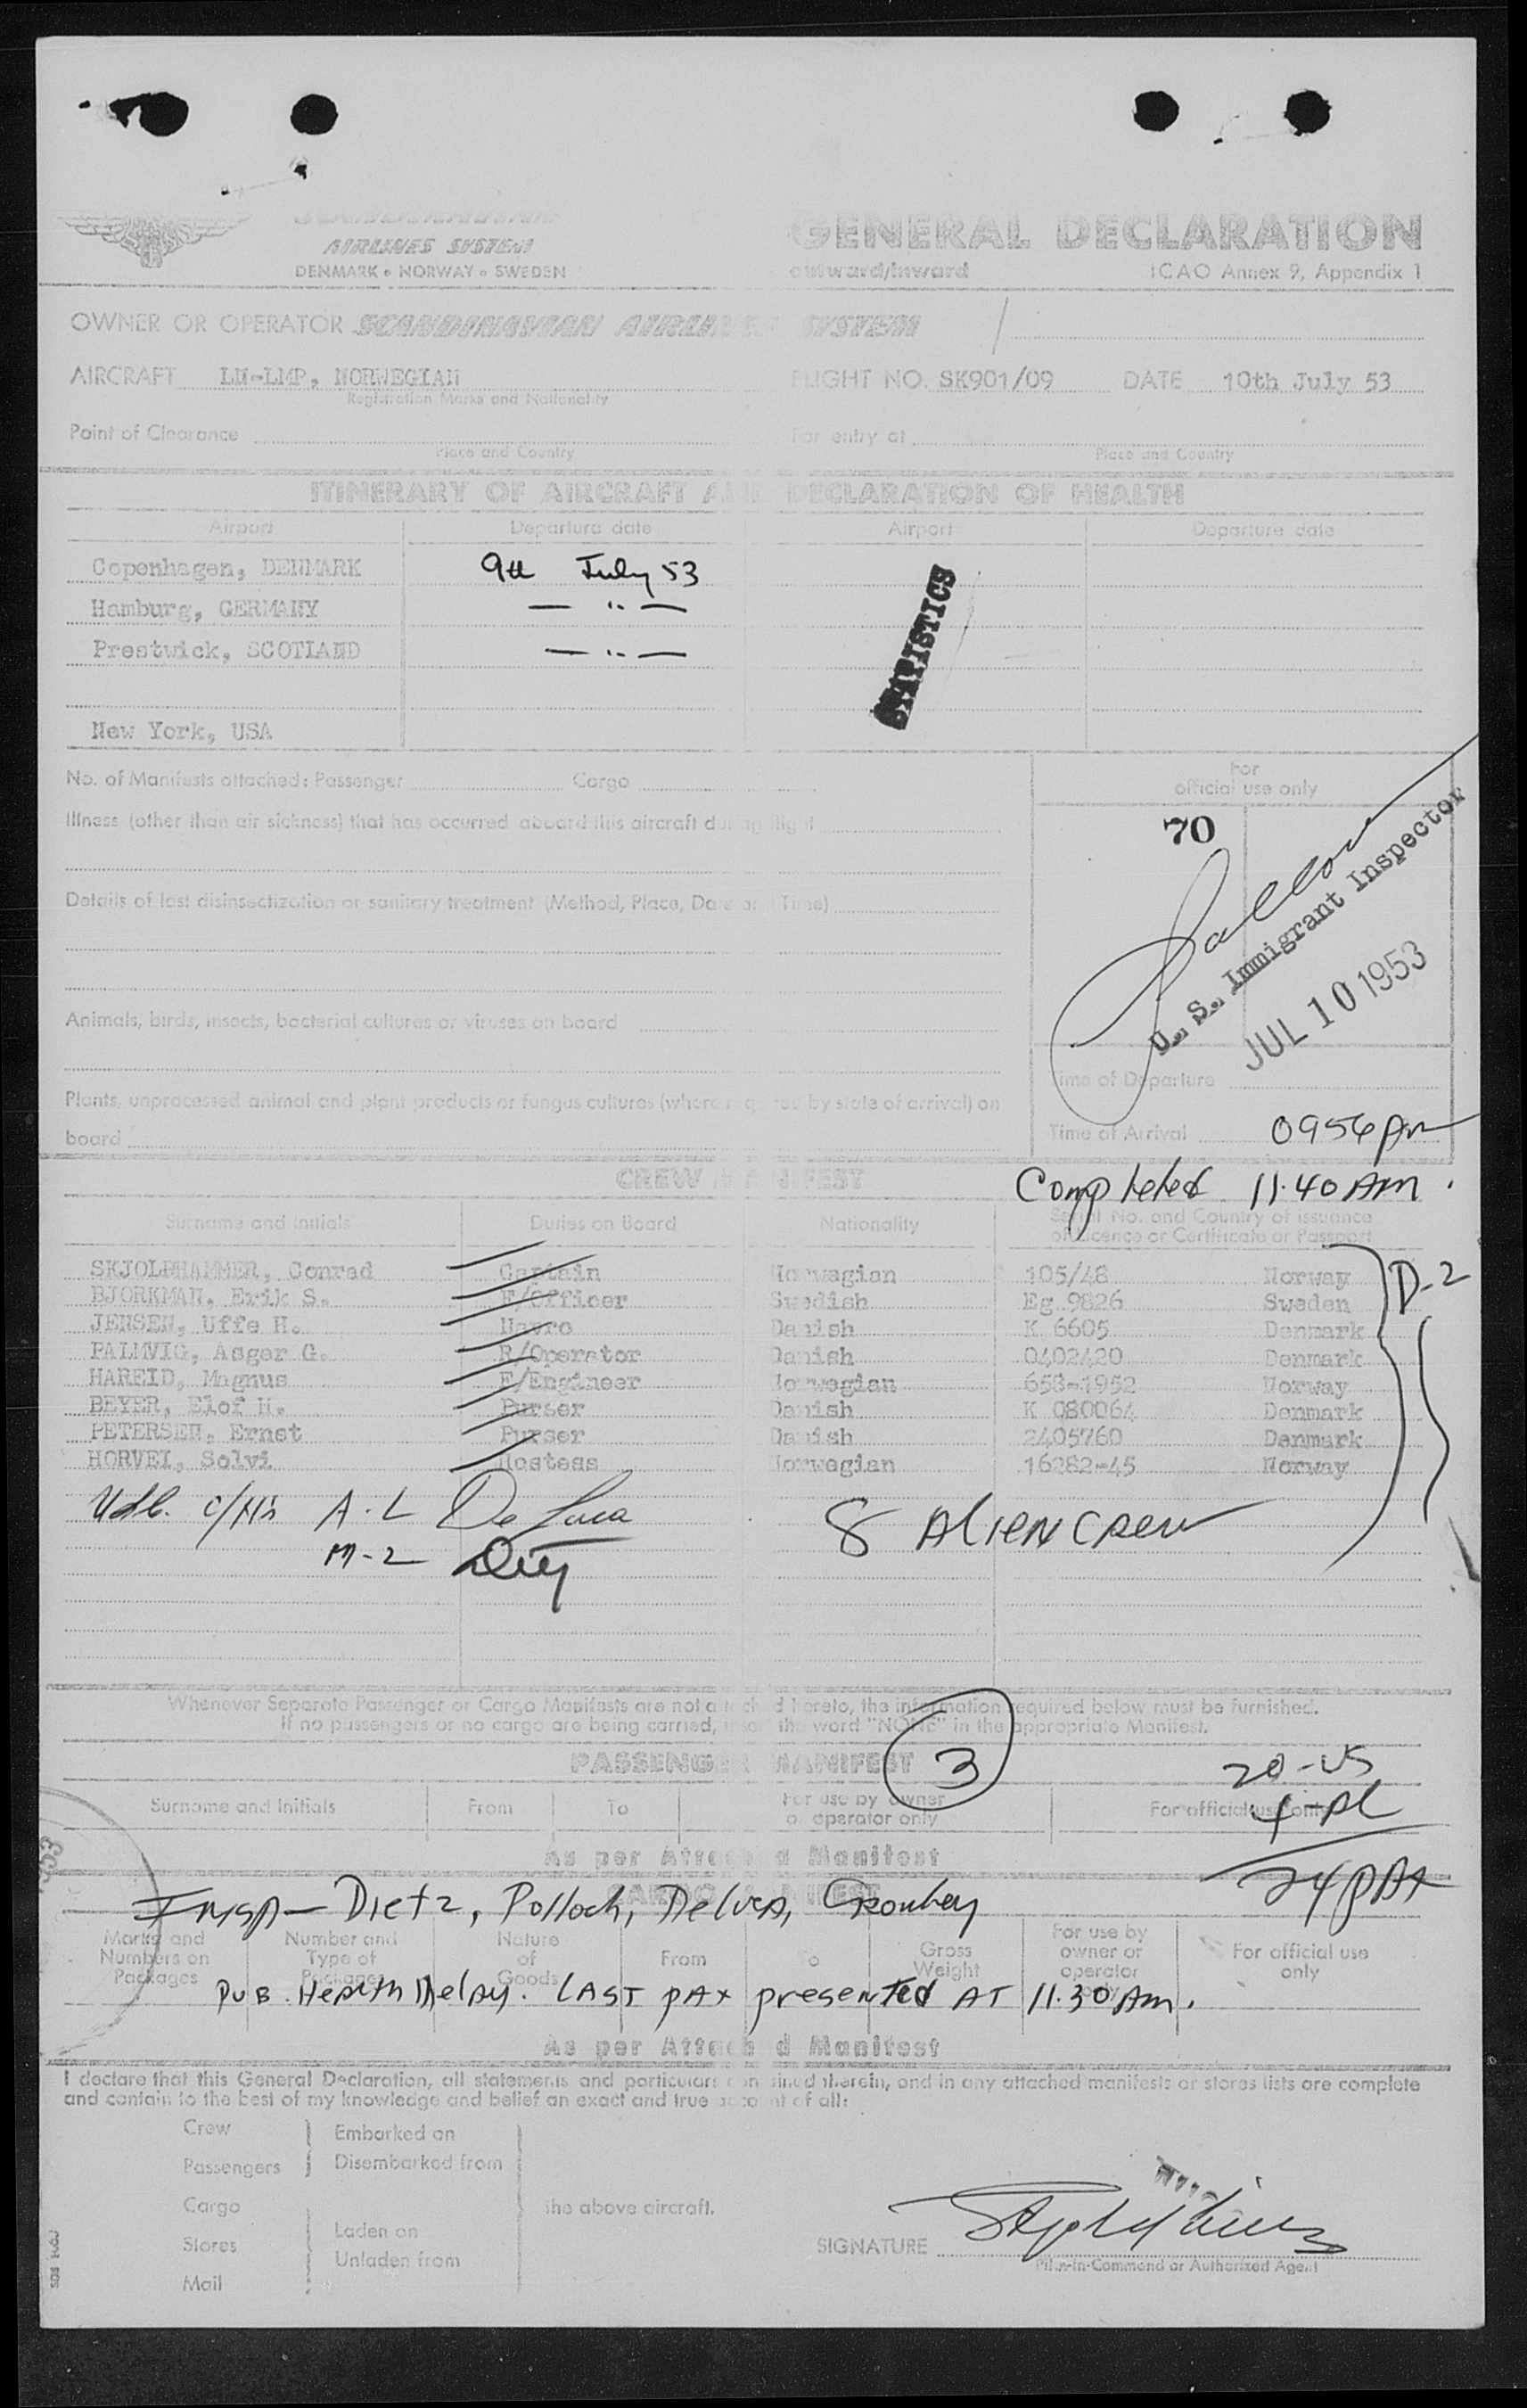 SCANDINAVIAN
AIRLINES SYSTEM
DENMARK • NORWAY • SWEDEN
GENERAL DECLARATION
outward/inward
ICAO Annex 9, Appendix 1
OWNER OR OPERATOR SCANDINAVIAN AIRLINES SYSTEM
AIRCRAFT LN-LMP, NORWEGIAN
Registration Marks and Nationality
FLIGHT NO. SK901/09 DATE 10th July 53
Point of Clearance
Place and Country
For entry at
Place and Country
ITINERARY OF AIRCRAFT AND DECLARATION OF HEALTH
Airport Departure date Airport Departure date
Copenhagen, DENMARK 9th July 53
Hamburg, GERMANY — " —
Prestwick, SCOTLAND — " —
New York, USA
STATISTICS
No. of Manifests attached: Passenger Cargo
For
official use only
70
Illness (other than air sickness) that has occurred aboard this aircraft during flight
Details of last disinsectization or sanitary treatment (Method, Place, Date and Time)
U. S. Immigrant Inspector
JUL 10 1953
Animals, birds, insects, bacterial cultures or viruses on board
Time of Departure
Plants, unprocessed animal and plant products or fungus cultures (where required by state of arrival) on
board
Time of Arrival 0956 Am
CREW MANIFEST
Completed 11.40 AM.
Surname and Initials Duties on Board Nationality Serial No. and Country of issuance
of Licence or Certificate or Passport
SKJOLDHAMMER, Conrad Captain Norwegian 105/48 Norway
D-2
BJORKMAN, Erik S. F/Officer Swedish Eg 9826 Sweden
JENSEN, Uffe H. Navro Danish K 6605 Denmark
PALMVIG, Asger G. R/Operator Danish 0402420 Denmark
HAREID, Magnus F/Engineer Norwegian 658-1952 Norway
BEYER, Elof H. Purser Danish K 080064 Denmark
PETERSEN, Ernst Purser Danish 2405760 Denmark
HORVEI, Solvi Hostess Norwegian 16282-45 Norway
A-L De Luca
8 ALIEN CREW
M-2
Whenever Separate Passenger or Cargo Manifests are not attached hereto, the information required below must be furnished.
If no passengers or no cargo are being carried, insert the word "NONE" in the appropriate Manifest.
PASSENGER MANIFEST
3
20-US
Surname and Initials From To For use by owner
or operator only
For official use only
4-AL
As per Attached Manifest
24 PAX
CARGO MANIFEST
INSP — Dietz, Pollock, Delven,
Marks and
Numbers on
Packages
Number and
Type of
Packages
Nature
of
Goods
From
To
Gross
Weight
For use by
owner or
operator
only
For official use
only
PUB. Health Delay. LAST PAX presented AT 11.30 Am.
As per Attached Manifest
I declare that this General Declaration, all statements and particulars contained therein, and in any attached manifests or stores lists are complete
and contain to the best of my knowledge and belief an exact and true account of all:
Crew
Passengers
Embarked on
Disembarked from
Cargo
Stores
Mail
Laden on
Unladen from
the above aircraft.
SIGNATURE
Pilot-in-Command or Authorized Agent